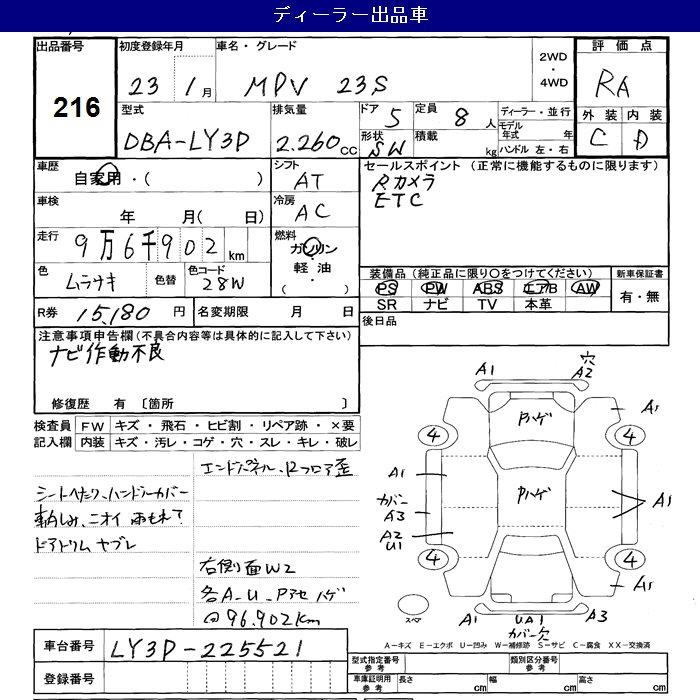 ディーラー出品車
出品番号
216
初度登録年月
23 1月
車名・グレード
MPV 23S
2WD
・
4WD
評価点
RA
外装 内装
C D
型式
DBA-LY3P
排気量
2.260cc
ドア 5
定員 8人
形状 SW
積載 kg
ディーラー・並行
モデル年式 年
ハンドル 左・右
車歴
自家用・( )
シフト
AT
セールスポイント (正常に機能するものに限ります)
Rカメラ
ETC
車検
年 月( 日)
冷房
AC
走行
9万6千902km
燃料
ガソリン
軽油
( )
色
ムラサキ
色替
色コード
28W
装備品(純正品に限り○をつけてください)
PS PW ABS エアB AW
SR ナビ TV 本革
新車保証書
有・無
R券 15,180円
名変期限 月 日
後日品
注意事項申告欄(不具合内容等は具体的に記入して下さい)
ナビ作動不良
修復歴 有〔箇所 〕
検査員記入欄
FW キズ・飛石・ヒビ割・リペア跡・×要
内装 キズ・汚レ・コゲ・穴・スレ・キレ・破レ
エンドパネル、Rフロア歪
シートヘタリ、ハンドルカバー
ニオイ
ドアトリム ヤブレ
右側面W2
各A-U-Pアセハゲ
@96.902km
A1
穴
A2
Pハゲ
A1
4
4
A1
Pハゲ
カバー
A3
A1
A2
U1
4
4
A1
スペア
A1
UA1
A3
カバー穴
A-キズ E-エクボ U-凹み W-補修跡 S-サビ C-腐食 XX-交換済
車台番号 LY3P-225521
登録番号
型式指定番号 参考
類別区分番号 参考
車庫証明用 参考
長さ cm
幅 cm
高さ cm